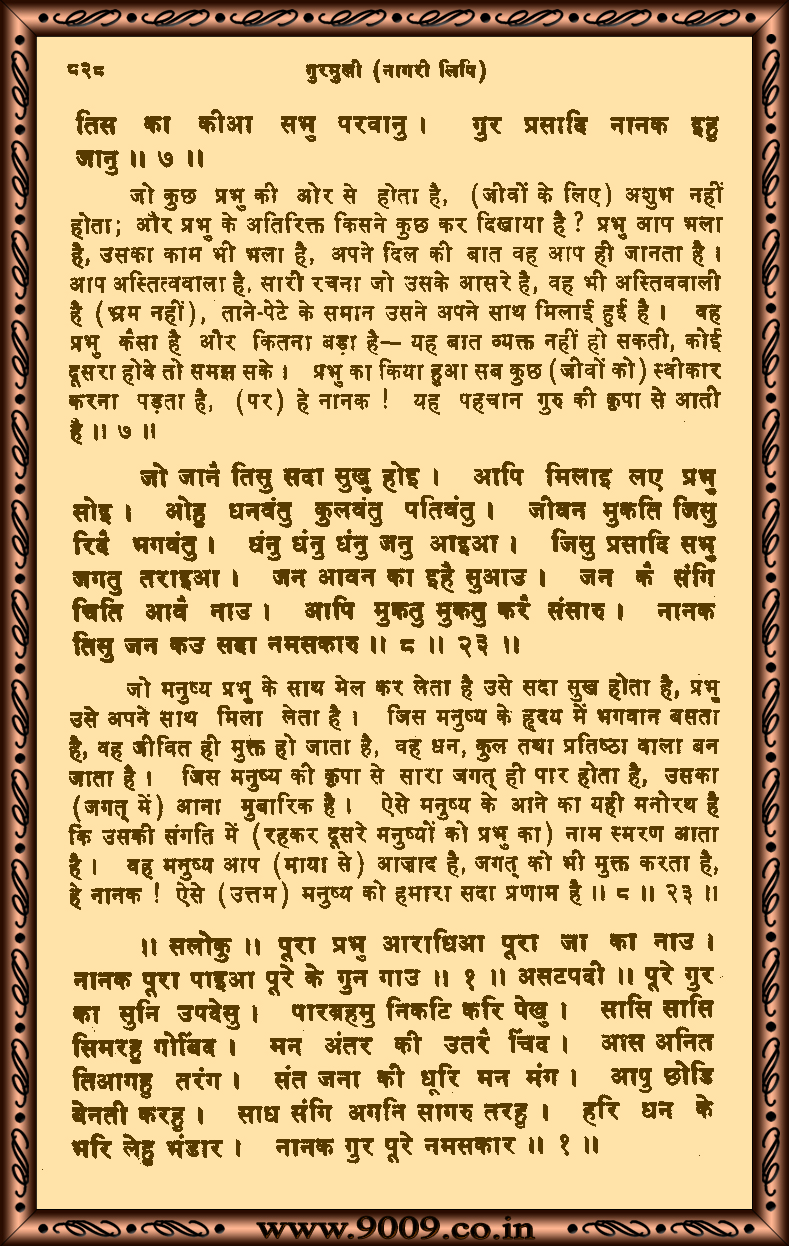 ८२८ गुरमुखी (नागरी लिपि)
तिस का कीआ सभु परवानु। गुर प्रसादि नानक इहु
जानु ॥ ७ ॥
जो कुछ प्रभु की ओर से होता है, (जीवों के लिए) अशुभ नहीं
होता; और प्रभु के अतिरिक्त किसने कुछ कर दिखाया है? प्रभु आप भला
है, उसका काम भी भला है, अपने दिल की बात वह आप ही जानता है।
आप अस्तित्ववाला है, सारी रचना जो उसके आसरे है, वह भी अस्तिववाली
है (भ्रम नहीं), ताने-पेटे के समान उसने अपने साथ मिलाई हुई है। वह
प्रभु कैसा है और कितना बड़ा है— यह बात व्यक्त नहीं हो सकती, कोई
दूसरा होवे तो समझ सके। प्रभु का किया हुआ सब कुछ (जीवों को) स्वीकार
करना पड़ता है, (पर) हे नानक ! यह पहचान गुरु की कृपा से आती
है ॥ ७ ॥
जो जानै तिसु सदा सुखु होइ। आपि मिलाइ लए प्रभु
सोइ। ओहु धनवंतु कुलवंतु पतिवंतु। जीवन मुकति जिसु
रिदै भगवंतु। धंनु धंनु धंनु जनु आइआ। जिसु प्रसादि सभु
जगतु तराइआ। जन आवन का इहै सुआउ। जन कै संगि
चिति आवै नाउ। आपि मुकतु मुकतु करै संसारु। नानक
तिसु जन कउ सदा नमसकारु ॥ ८ ॥ २३ ॥
जो मनुष्य प्रभु के साथ मेल कर लेता है उसे सदा सुख होता है, प्रभु
उसे अपने साथ मिला लेता है। जिस मनुष्य के हृदय में भगवान बसता
है, वह जीवित ही मुक्त हो जाता है, वह धन, कुल तथा प्रतिष्ठा वाला बन
जाता है। जिस मनुष्य की कृपा से सारा जगत् ही पार होता है, उसका
(जगत् में) आना मुबारिक है। ऐसे मनुष्य के आने का यही मनोरथ है
कि उसकी संगति में (रहकर दूसरे मनुष्यों को प्रभु का) नाम स्मरण आता
है। वह मनुष्य आप (माया से) आज़ाद है, जगत् को भी मुक्त करता है,
हे नानक ! ऐसे (उत्तम) मनुष्य को हमारा सदा प्रणाम है ॥ ८ ॥ २३ ॥
॥ सलोकु ॥ पूरा प्रभु आराधिआ पूरा जा का नाउ।
नानक पूरा पाइआ पूरे के गुन गाउ ॥ १ ॥ असटपदी ॥ पूरे गुर
का सुनि उपदेसु। पारब्रहमु निकटि करि पेखु। सासि सासि
सिमरहु गोबिंद। मन अंतर की उतरै चिंद। आस अनित
तिआगहु तरंग। संत जना की धूरि मन मंग। आपु छोडि
बेनती करहु। साध संगि अगनि सागरु तरहु। हरि धन के
भरि लेहु भंडार। नानक गुर पूरे नमसकार ॥ १ ॥
www.9009.co.in